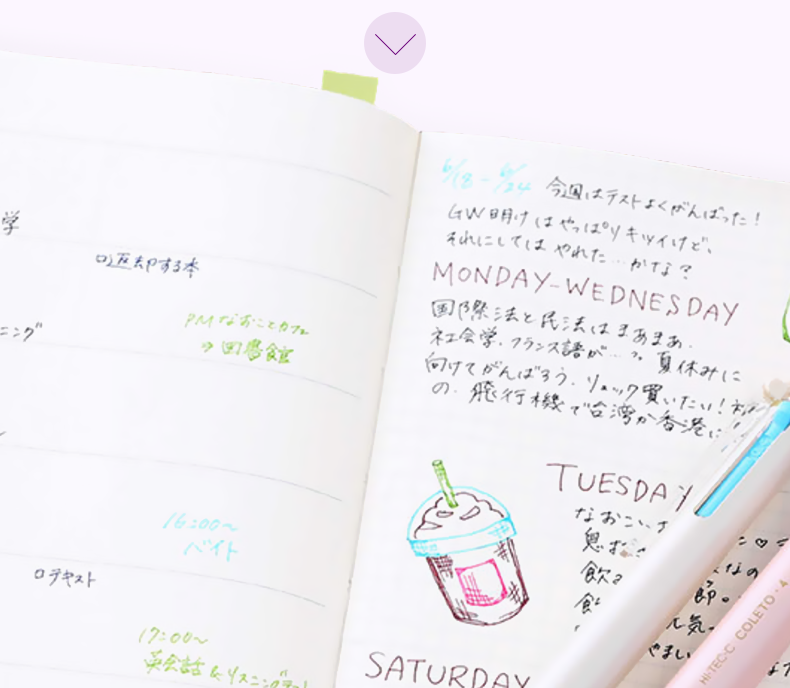 学
□返却する本
PM なおことカフェ
→図書館
ニング
16:00〜
バイト
□テキスト
17:00〜
英会話 & リスニング
6/18 - 6/24 今週はテストよくがんばった!
GW明けはやっぱりキツイけど、
それにしてはやれた…かな?
MONDAY-WEDNESDAY
国際法と民法はまあまあ.
社会学、フランス語が…?。夏休みに
向けてがんばろう。リュック買いたい!
の。飛行機で台湾か香港に
TUESDAY
なおこ
息
飲
SATURDAY
HI-TEC-C COLETO・4